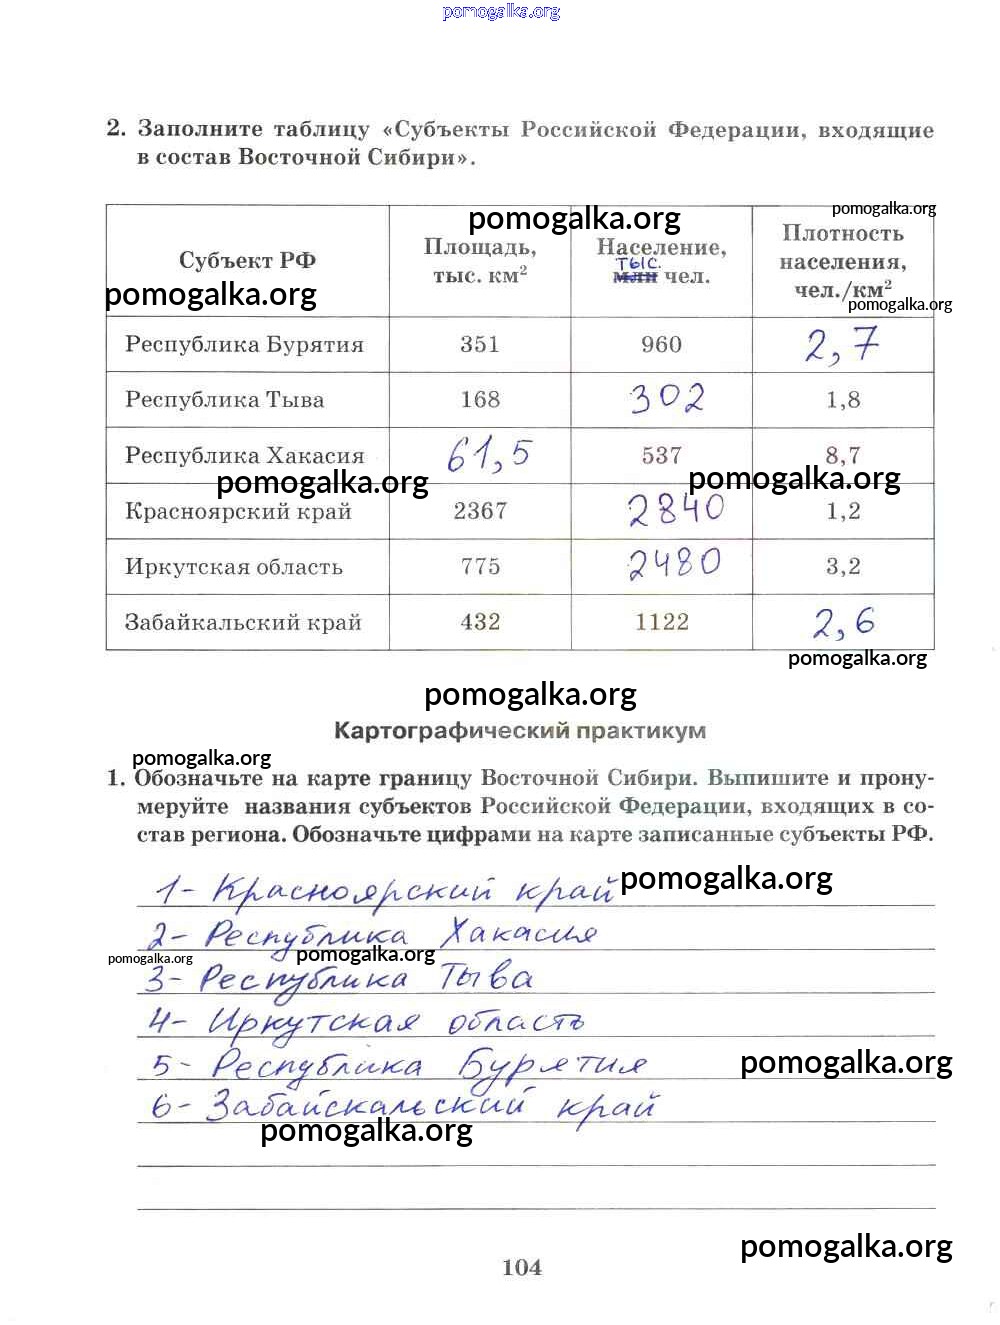 pomogalka.org
2. Заполните таблицу «Субъекты Российской Федерации, входящие
в состав Восточной Сибири».
pomogalka.org
pomogalka.org
Субъект РФ
Площадь,
тыс. км²
Население,
тыс.
млн чел.
Плотность
населения,
чел./км²
pomogalka.org
pomogalka.org
Республика Бурятия 351 960 2,7
Республика Тыва 168 302 1,8
Республика Хакасия 61,5 537 8,7
pomogalka.org
pomogalka.org
Красноярский край 2367 2840 1,2
Иркутская область 775 2480 3,2
Забайкальский край 432 1122 2,6
pomogalka.org
pomogalka.org
Картографический практикум
pomogalka.org
1. Обозначьте на карте границу Восточной Сибири. Выпишите и прону-
меруйте названия субъектов Российской Федерации, входящих в со-
став региона. Обозначьте цифрами на карте записанные субъекты РФ.
1- Красноярский край
pomogalka.org
2- Республика Хакасия
pomogalka.org
pomogalka.org
3- Республика Тыва
4- Иркутская область
5- Республика Бурятия
pomogalka.org
6- Забайскальский край
pomogalka.org
pomogalka.org
104